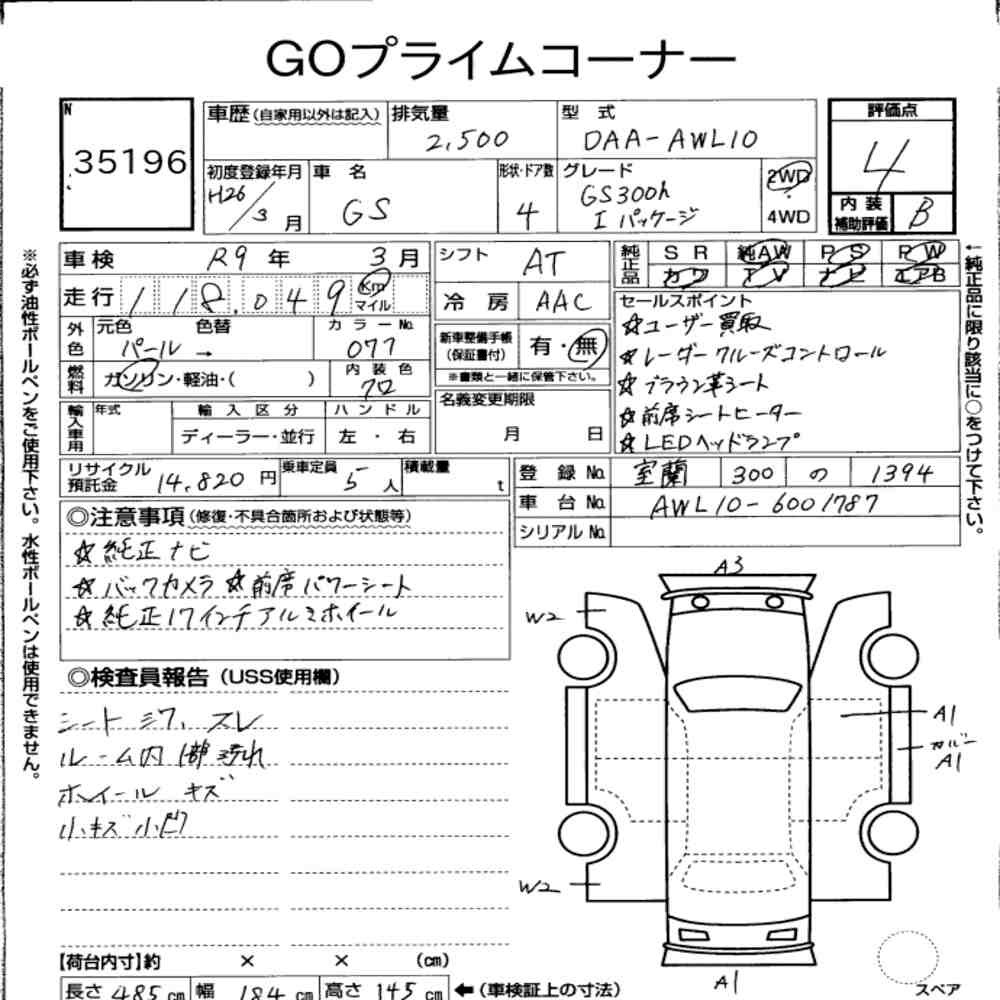 GOプライムコーナー
N
35196
車歴(自家用以外は記入)
排気量
2,500
型 式
DAA-AWL10
評価点
4
初度登録年月
H26/3月
車 名
GS
形状・ドア数
4
グレード
GS300h
I パッケージ
2WD
4WD
内 装
補助評価
B
車検 R9 年 3 月
シフト AT
純正品
S R 純AW P S P W
カワ T V ナビ エアB
走行 118,049 Km
マイル
冷 房 AAC
セールスポイント
☆ユーザー買取
☆レーダークルーズコントロール
☆ブラウン革シート
☆前席シートヒーター
☆LEDヘッドランプ
外色
元色 色替
パール →
カラーNo.
077
新車整備手帳
(保証書付)
有・無
※書類と一緒に保管下さい。
燃料
ガソリン・軽油・( )
内 装 色
クロ
名義変更期限
月 日
輸入車用
年式
輸 入 区 分
ディーラー・並行
ハ ン ド ル
左 ・ 右
リサイクル
預託金 14,820 円
乗車定員 5 人
積載量 t
登 録 No. 室蘭 300 の 1394
車 台 No. AWL10-6001787
シリアル No.
◎注意事項(修復・不具合箇所および状態等)
☆純正ナビ
☆バックカメラ ☆前席パワーシート
☆純正17インチアルミホイール
◎検査員報告(USS使用欄)
シート シワ、スレ
ルーム内 1部汚れ
ホイール キズ
小キズ 小凹
A3
W2
A1
カバー
A1
W2
A1
スペア
【荷台内寸】約 × × (cm)
長さ 485 cm 幅 184 cm 高さ 145 cm ←(車検証上の寸法)
※必ず油性ボールペンをご使用下さい。水性ボールペンは使用できません。
←純正品に限り該当に○をつけて下さい。